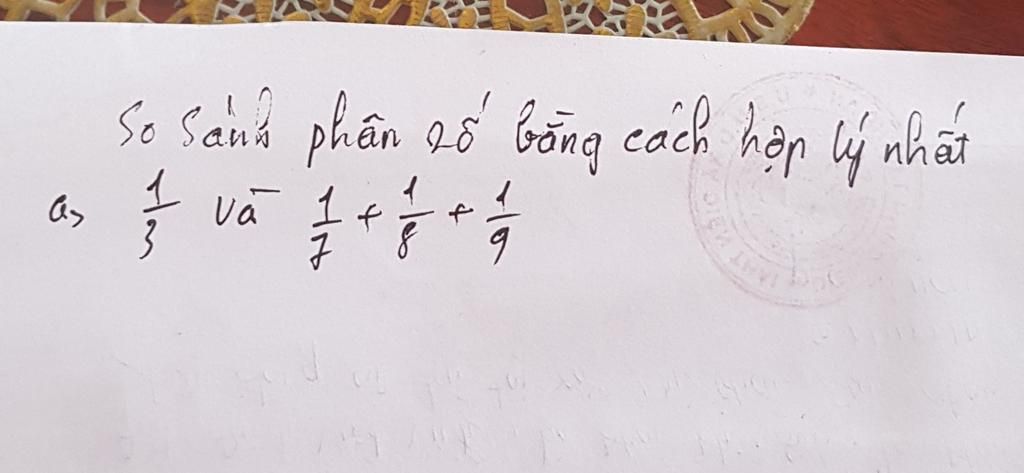 So sánh phân số bằng cách hợp lý nhất
a, 1/3 và 1/7 + 1/8 + 1/9